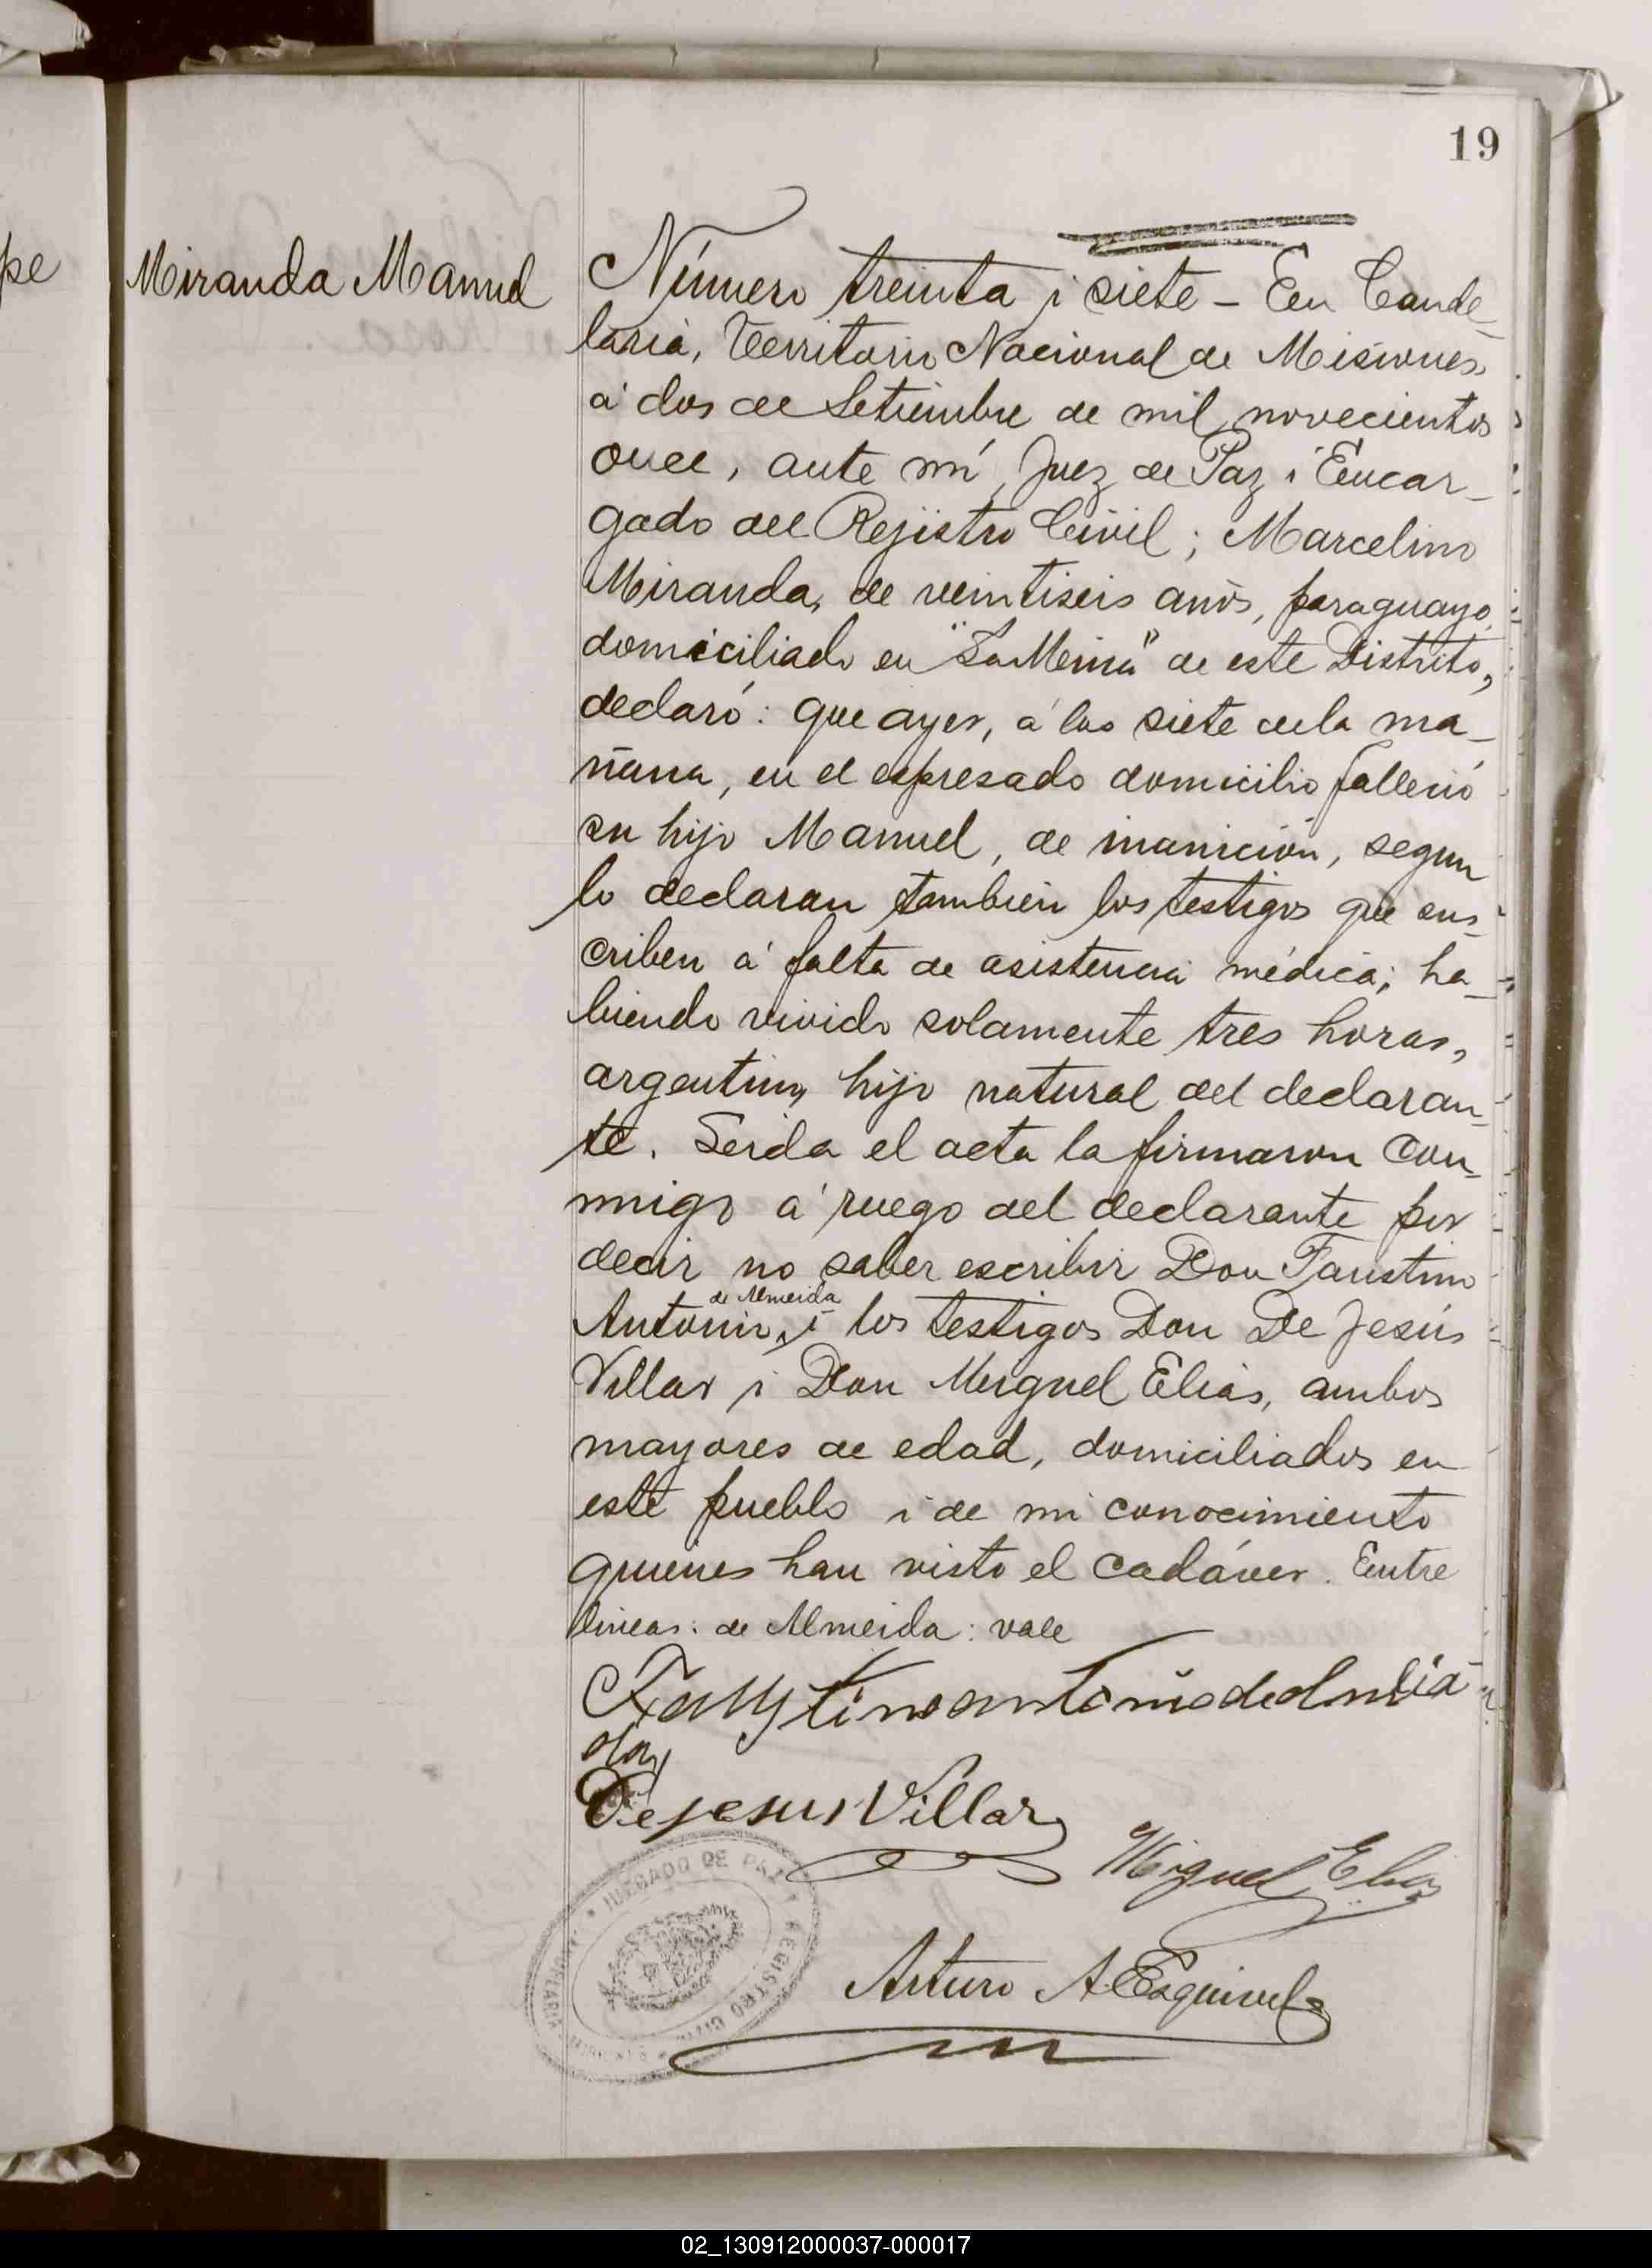 19
pe
Miranda Manuel
Número treinta i siete – En Cande-
laria, Territorio Nacional de Misiones,
á dos de Setiembre de mil novecientos
once, ante mí, Juez de Paz i Encar-
gado del Rejistro Civil; Marcelino
Miranda, de veintiseis años, paraguayo,
domiciliado en "La Mina" de este Distrito,
declaró: que ayer, á las siete de la ma-
ñana, en el espresado domicilio falleció
su hijo Manuel, de inanición, segun
lo declaran tambien los testigos que sus-
criben á falta de asistencia médica; ha-
biendo vivido solamente tres horas,
argentino, hijo natural del declaran-
te. Leida el acta la firmaron con-
migo á ruego del declarante por
decir no saber escribir Don Faustino
de Almeida
Antonio, i los testigos Don De Jesús
Villar i Don Miguel Elias, ambos
mayores de edad, domiciliados en
este pueblo i de mi conocimiento
quienes han visto el cadáver. Entre
lineas: de Almeida: vale
Faustino antonio de
De jesus Villar
Miguel Elias
JUZGADO DE PAZ Y REGISTRO CIVIL
Arturo A. Esquivel
02_130912000037-000017